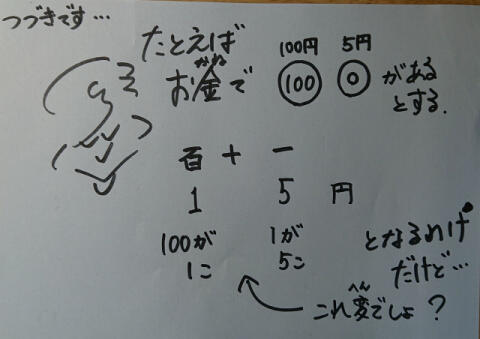 つづきです…
たとえば
かね
お金で
100円 5円
100 0 がある
とする.
百 十 一
1 5 円
100が 1が となるわけ
1こ 5こ だけど…
へん
これ変でしょ?